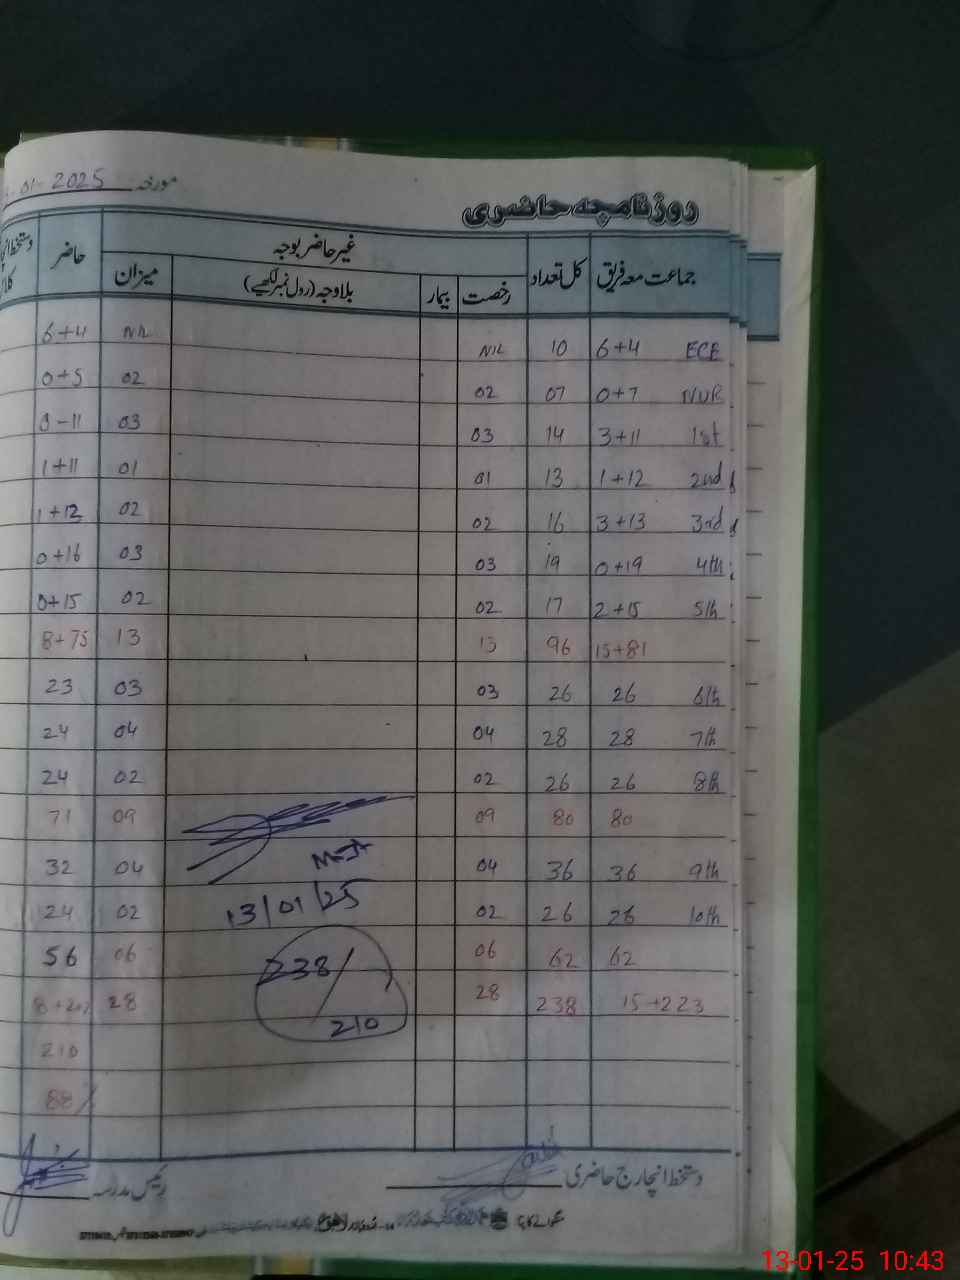 01-2025 مورخہ
روزنامچہ حاضری
جماعت معہ فریق کل تعداد غیر حاضر بوجہ حاضر
رخصت بیمار بلاوجہ (رول نمبر لکھیے) میزان
ECE 6+4 10 NIL NIL 6+4
NUR 0+7 07 02 02 0+5
1st 3+11 14 03 03 0-11
2nd 1+12 13 01 01 1+11
3rd 3+13 16 02 02 1+12
4th 0+19 19 03 03 0+16
5th 2+15 17 02 02 0+15
15+81 96 13 13 8+75
6th 26 26 03 03 23
7th 28 28 04 04 24
8th 26 26 02 02 24
80 80 09 09 71
9th 36 36 04 04 32
10th 26 26 02 02 24
13/01/25
62 62 06 06 56
238/210
15+223 238 28 28 8+202
210
88%
دستخط انچارج حاضری
رئیس مدرسہ
13-01-25 10:43